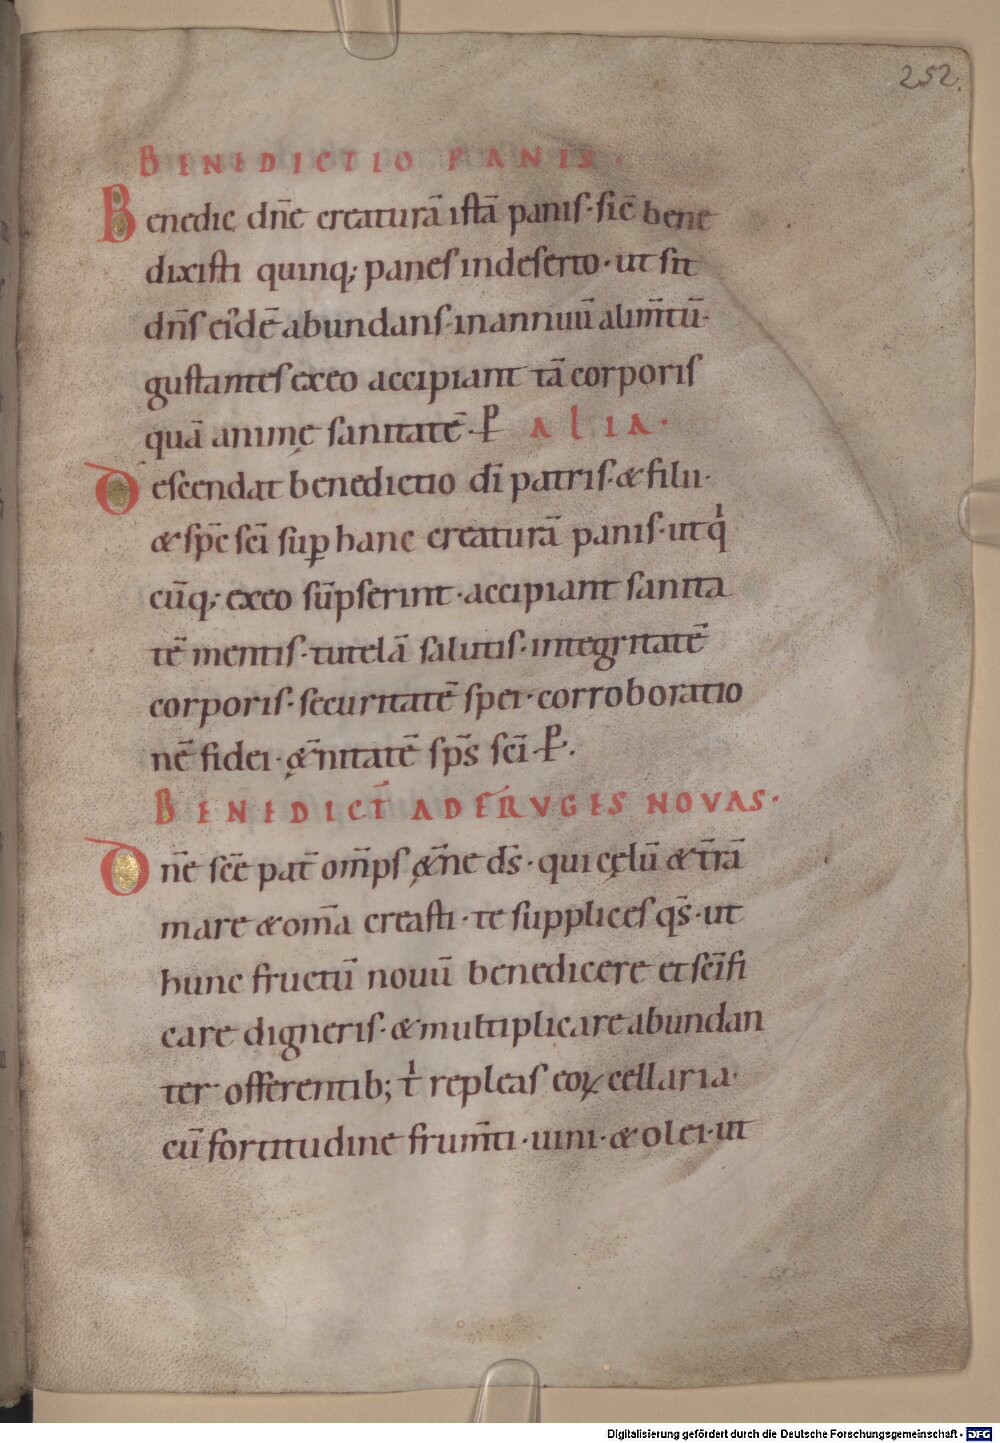 252.
BENEDICTIO PANIS·
Benedic dn̄e creaturā istā panis·sic̄ bene
dixisti quinq; panes indeserto·ut sit
dn̄s ei᾽dē abundans·inannuū alim̄tū·
gustantes exeo accipiant tā corporis
quā animę sanitatē·P̵ ALIA·
Descendat benedictio dī patris·& filii·
& sp̄c sc̄i suꝑ hanc creaturā panis·ut qͥ
cūq; exeo sūpserint·accipiant sanita
tē mentis·tutelā salutis·integritatē
corporis·securitatē spei·corroboratio
nē fidei·&̨̄nitatē sp̄s sc̄i·P̵·
BENEDICT̄ ADFRVGES NOVAS·
Dn̄e sc̄e pat̄ om̄ps &̨̄ne ds̄·qui cęlū & t̄rā
mare & om̄a creasti·te supplices qs̄·ut
hunc fructū nouū benedicere et sc̄ifi
care digneris·& multiplicare abundan
ter offerentib; tͥ repleas eoꝝ cellaria·
cū fortitudine frum̄ti·uini·& olei·ut
Digitalisierung gefördert durch die Deutsche Forschungsgemeinschaft - DFG